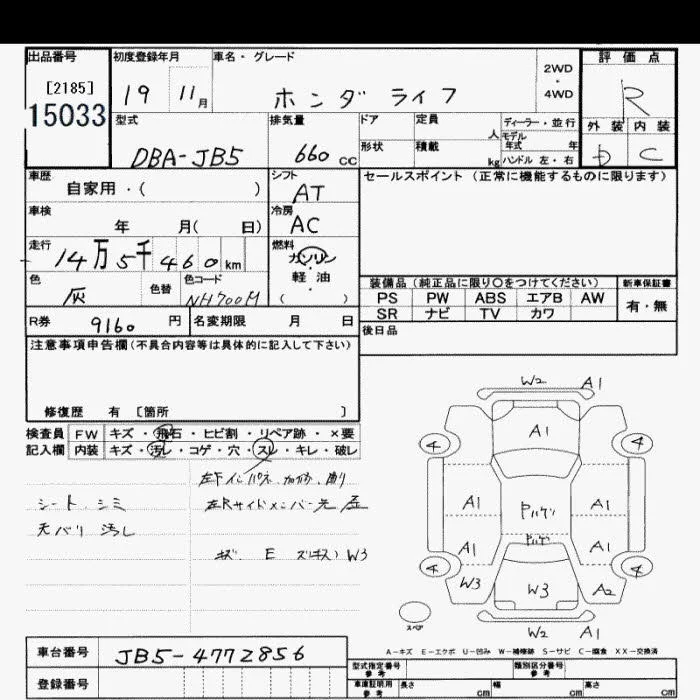 出品番号 初度登録年月 車名・グレード 評価点
[2185] 2WD
15033 19 11月 ホンダ ライフ ・ R
4WD
外装 内装
型式 排気量 ドア 定員 ディーラー・並行
人 モデル
DBA-JB5 660 CC 形状 積載 年式 年 D C
kg ハンドル 左・右
車歴 シフト セールスポイント (正常に機能するものに限ります)
自家用・( ) AT
車検 冷房
年 月( 日) AC
走行 燃料
14万5千460km ガソリン
軽油
色 色替 色コード ( )
灰 NH700M
装備品 (純正品に限り○をつけてください) 新車保証書
PS PW ABS エアB AW 有・無
SR ナビ TV カワ
R券 9160 円 名変期限 月 日
後日品
注意事項申告欄(不具合内容等は具体的に記入して下さい)
修復歴 有 [箇所 ]
検査員 FW キズ・飛石・ヒビ割・リペア跡・×要
記入欄 内装 キズ・汚レ・コゲ・穴・スレ・キレ・破レ
シート シミ
天バリ 汚し
左Rサイドメンバー先
キズ E W3
W2 A1
4 A1 4
A1 A1
A1 A1
4 4
W3 W3 A2
スペア
W2 A1
A-キズ E-エクボ U-凹み W-補修跡 S-サビ C-腐食 XX-交換済
車台番号 JB5-4772856
登録番号
型式指定番号 参考 類別区分番号 参考
車庫証明用 参考 長さ cm 幅 cm 高さ cm